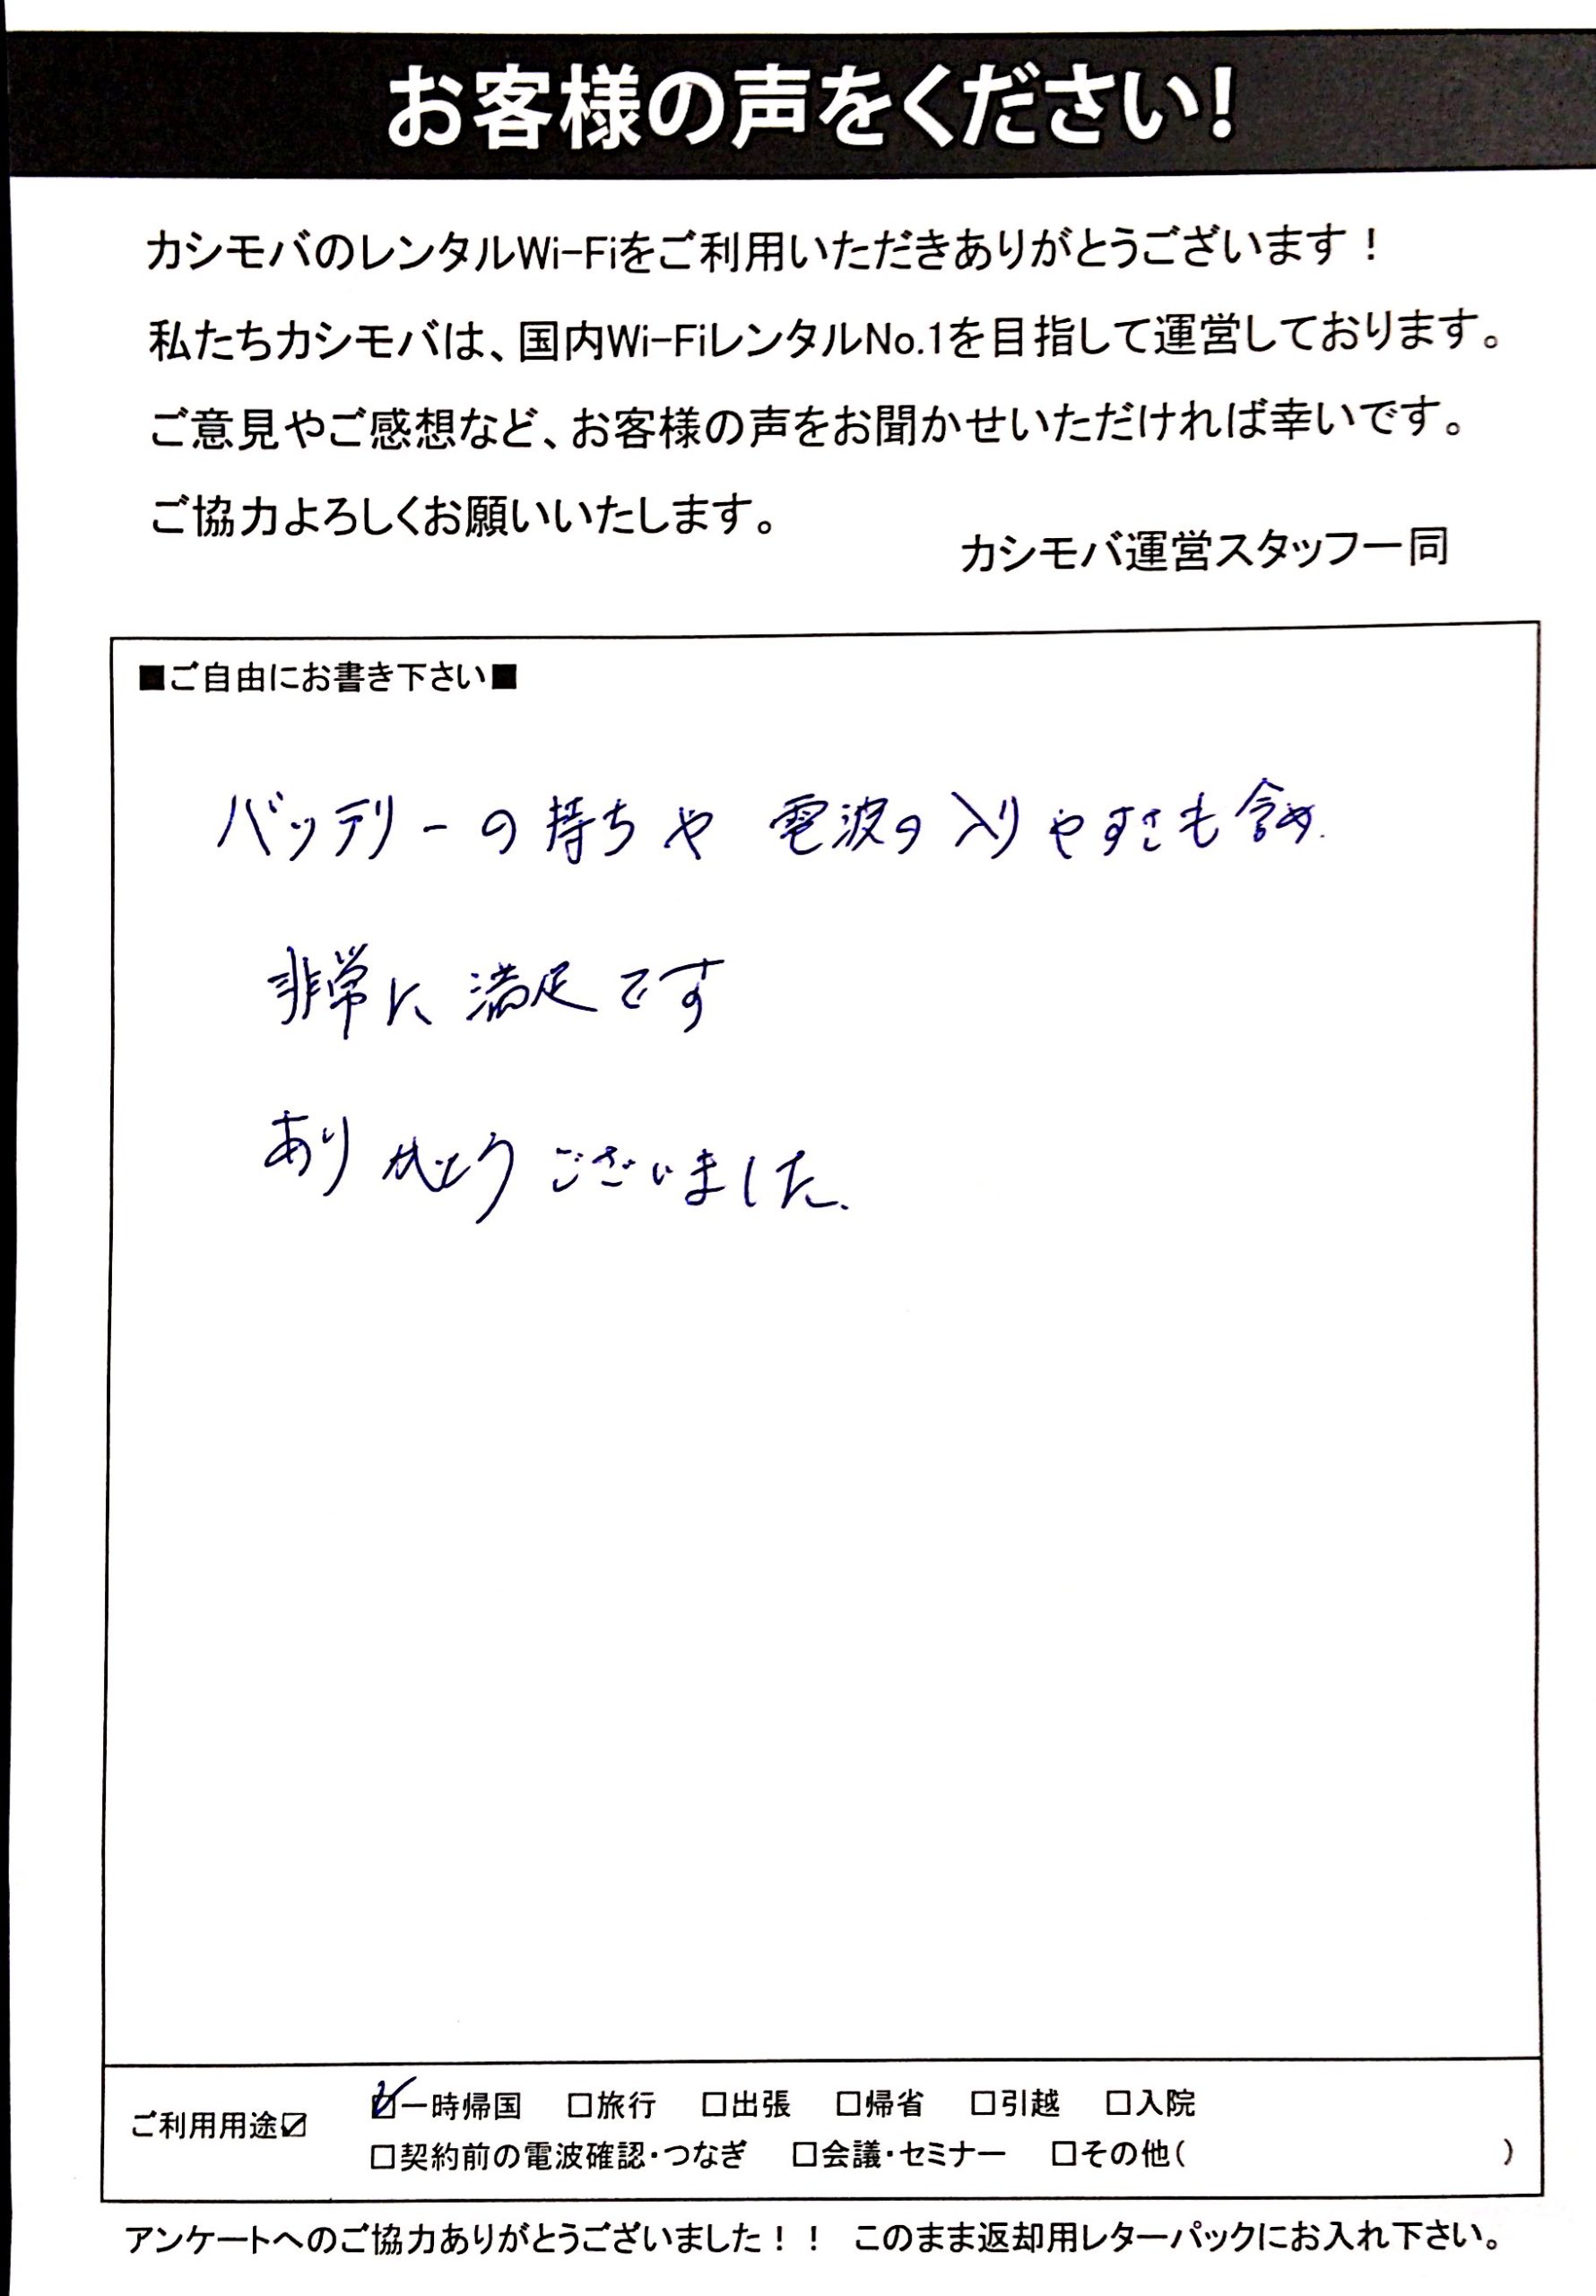 お客様の声をください!
カシモバのレンタルWi-Fiをご利用いただきありがとうございます！
私たちカシモバは、国内Wi-FiレンタルNo.1を目指して運営しております。
ご意見やご感想など、お客様の声をお聞かせいただければ幸いです。
ご協力よろしくお願いいたします。
カシモバ運営スタッフ一同
■ご自由にお書き下さい■
バッテリーの持ちや 電波の入りやすさも含め.
非常に満足です
ありがとうございました.
ご利用用途☑ ☑一時帰国 □旅行 □出張 □帰省 □引越 □入院
□契約前の電波確認・つなぎ □会議・セミナー □その他( )
アンケートへのご協力ありがとうございました！！ このまま返却用レターパックにお入れ下さい。